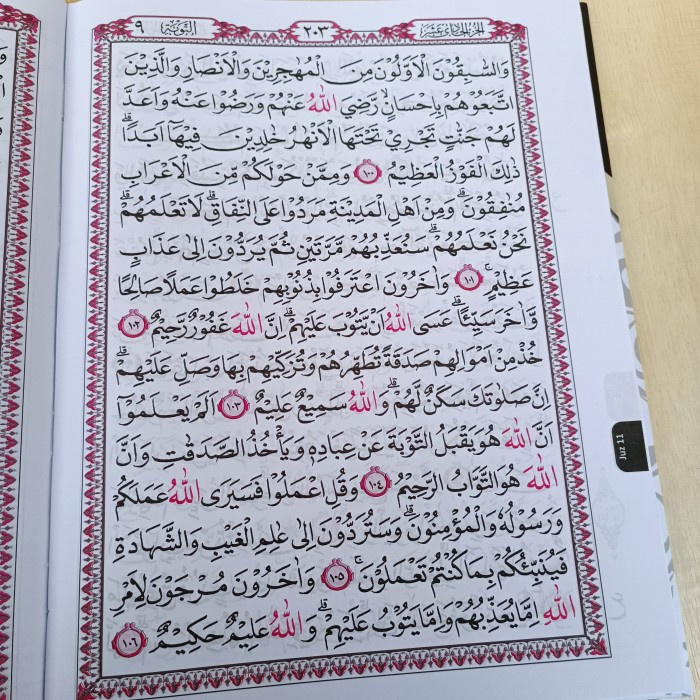 الجزء الحادي عشر
٢٠٣
التوبة
٩
وَالسّٰبِقُوْنَ الْاَوَّلُوْنَ مِنَ الْمُهٰجِرِيْنَ وَالْاَنْصَارِ وَالَّذِيْنَ
اتَّبَعُوْهُمْ بِاِحْسَانٍۙ رَّضِيَ اللّٰهُ عَنْهُمْ وَرَضُوْا عَنْهُ وَاَعَدَّ
لَهُمْ جَنّٰتٍ تَجْرِيْ تَحْتَهَا الْاَنْهٰرُ خٰلِدِيْنَ فِيْهَآ اَبَدًاۗ
ذٰلِكَ الْفَوْزُ الْعَظِيْمُ ١٠٠ وَمِمَّنْ حَوْلَكُمْ مِّنَ الْاَعْرَابِ
مُنٰفِقُوْنَۗ وَمِنْ اَهْلِ الْمَدِيْنَةِ مَرَدُوْا عَلَى النِّفَاقِۗ لَا تَعْلَمُهُمْۗ
نَحْنُ نَعْلَمُهُمْۗ سَنُعَذِّبُهُمْ مَّرَّتَيْنِ ثُمَّ يُرَدُّوْنَ اِلٰى عَذَابٍ
عَظِيْمٍۚ ١٠١ وَاٰخَرُوْنَ اعْتَرَفُوْا بِذُنُوْبِهِمْ خَلَطُوْا عَمَلًا صَالِحًا
وَّاٰخَرَ سَيِّئًاۗ عَسَى اللّٰهُ اَنْ يَّتُوْبَ عَلَيْهِمْۗ اِنَّ اللّٰهَ غَفُوْرٌ رَّحِيْمٌ ١٠٢
خُذْ مِنْ اَمْوَالِهِمْ صَدَقَةً تُطَهِّرُهُمْ وَتُزَكِّيْهِمْ بِهَا وَصَلِّ عَلَيْهِمْۗ
اِنَّ صَلٰوتَكَ سَكَنٌ لَّهُمْۗ وَاللّٰهُ سَمِيْعٌ عَلِيْمٌ ١٠٣ اَلَمْ يَعْلَمُوْٓا
اَنَّ اللّٰهَ هُوَ يَقْبَلُ التَّوْبَةَ عَنْ عِبَادِهٖ وَيَأْخُذُ الصَّدَقٰتِ وَاَنَّ
اللّٰهَ هُوَ التَّوَّابُ الرَّحِيْمُ ١٠٤ وَقُلِ اعْمَلُوْا فَسَيَرَى اللّٰهُ عَمَلَكُمْ
وَرَسُوْلُهٗ وَالْمُؤْمِنُوْنَۗ وَسَتُرَدُّوْنَ اِلٰى عٰلِمِ الْغَيْبِ وَالشَّهَادَةِ
فَيُنَبِّئُكُمْ بِمَا كُنْتُمْ تَعْمَلُوْنَۚ ١٠٥ وَاٰخَرُوْنَ مُرْجَوْنَ لِاَمْرِ
اللّٰهِ اِمَّا يُعَذِّبُهُمْ وَاِمَّا يَتُوْبُ عَلَيْهِمْۗ وَاللّٰهُ عَلِيْمٌ حَكِيْمٌ ١٠٦
Juz 11